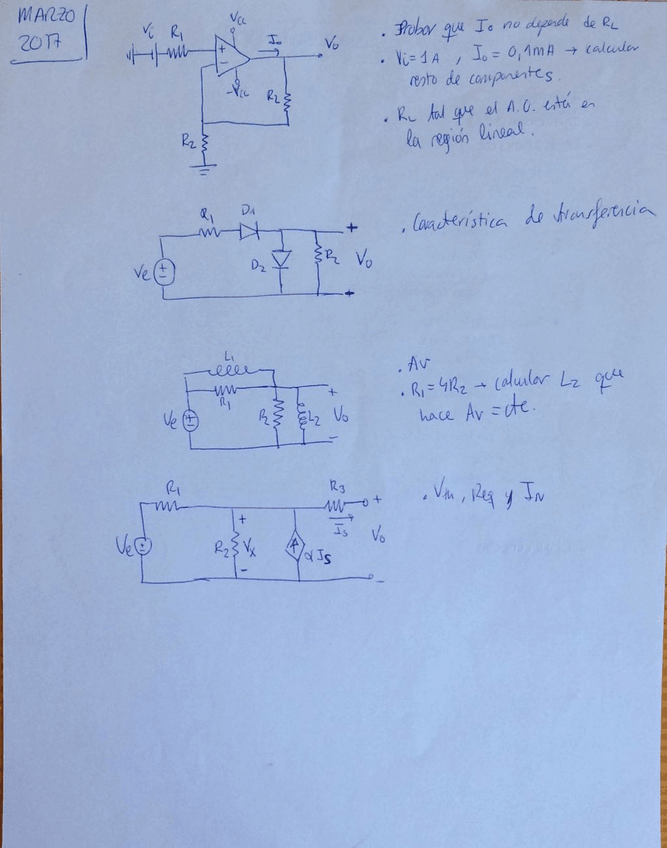 MARZO
2017
Vi R1 Vcc Io Vo
-Vcc
R2
R2
. Probar que Io no depende de RL
. Vi=1A , Io = 0,1mA → calcular
resto de componentes.
. RL tal que el A.O. está en
la región lineal.
R1 D1 +
Ve D2 R2 Vo
+
. Característica de transferencia
L1
R1 +
Ve R2 L2 Vo
-
. Av
. R1=4R2 → calcular L2 que
hace Av = cte.
R1 R3 +
Is
Ve R2 + Vx - αIs Vo
-
. Vth, Req y IN